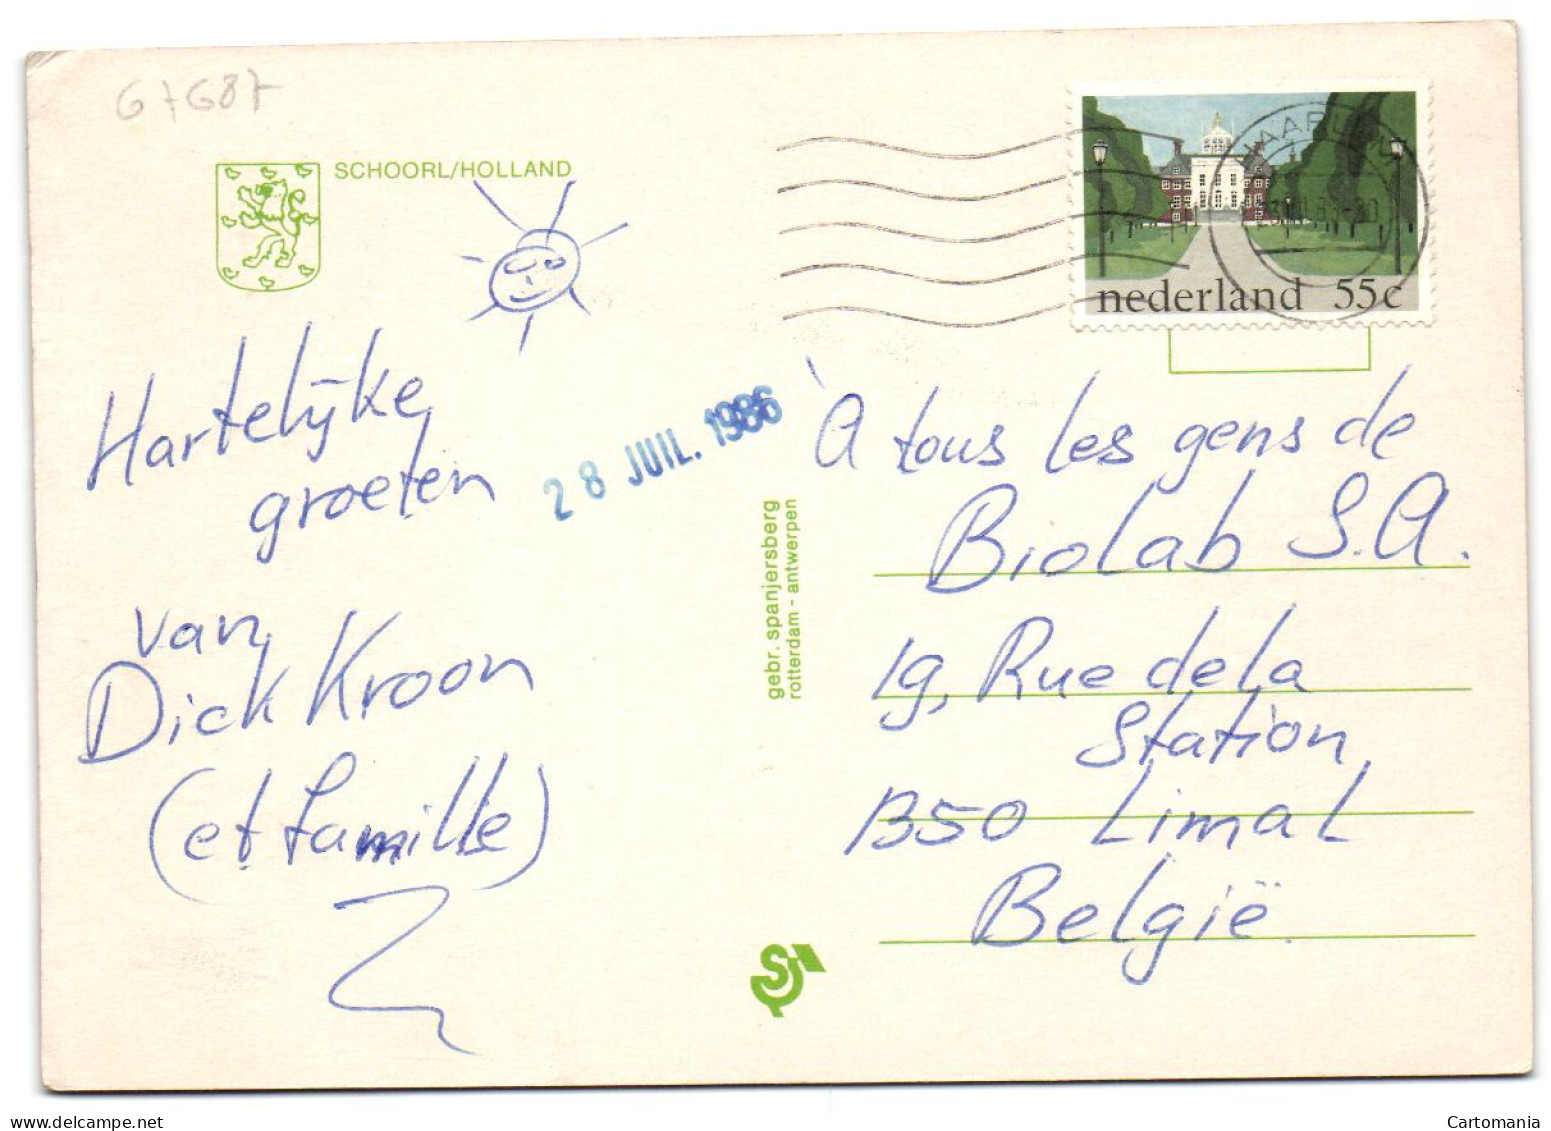 67687
SCHOORL/HOLLAND
nederland 55c
Hartelijke
groeten
van
Dick Kroon
(et famille)
28 JUIL. 1986
gebr. spanjersberg
rotterdam - antwerpen
À tous les gens de
Biolab S.A.
19, Rue de la
Station
B50 Limal
België.
Cartomania